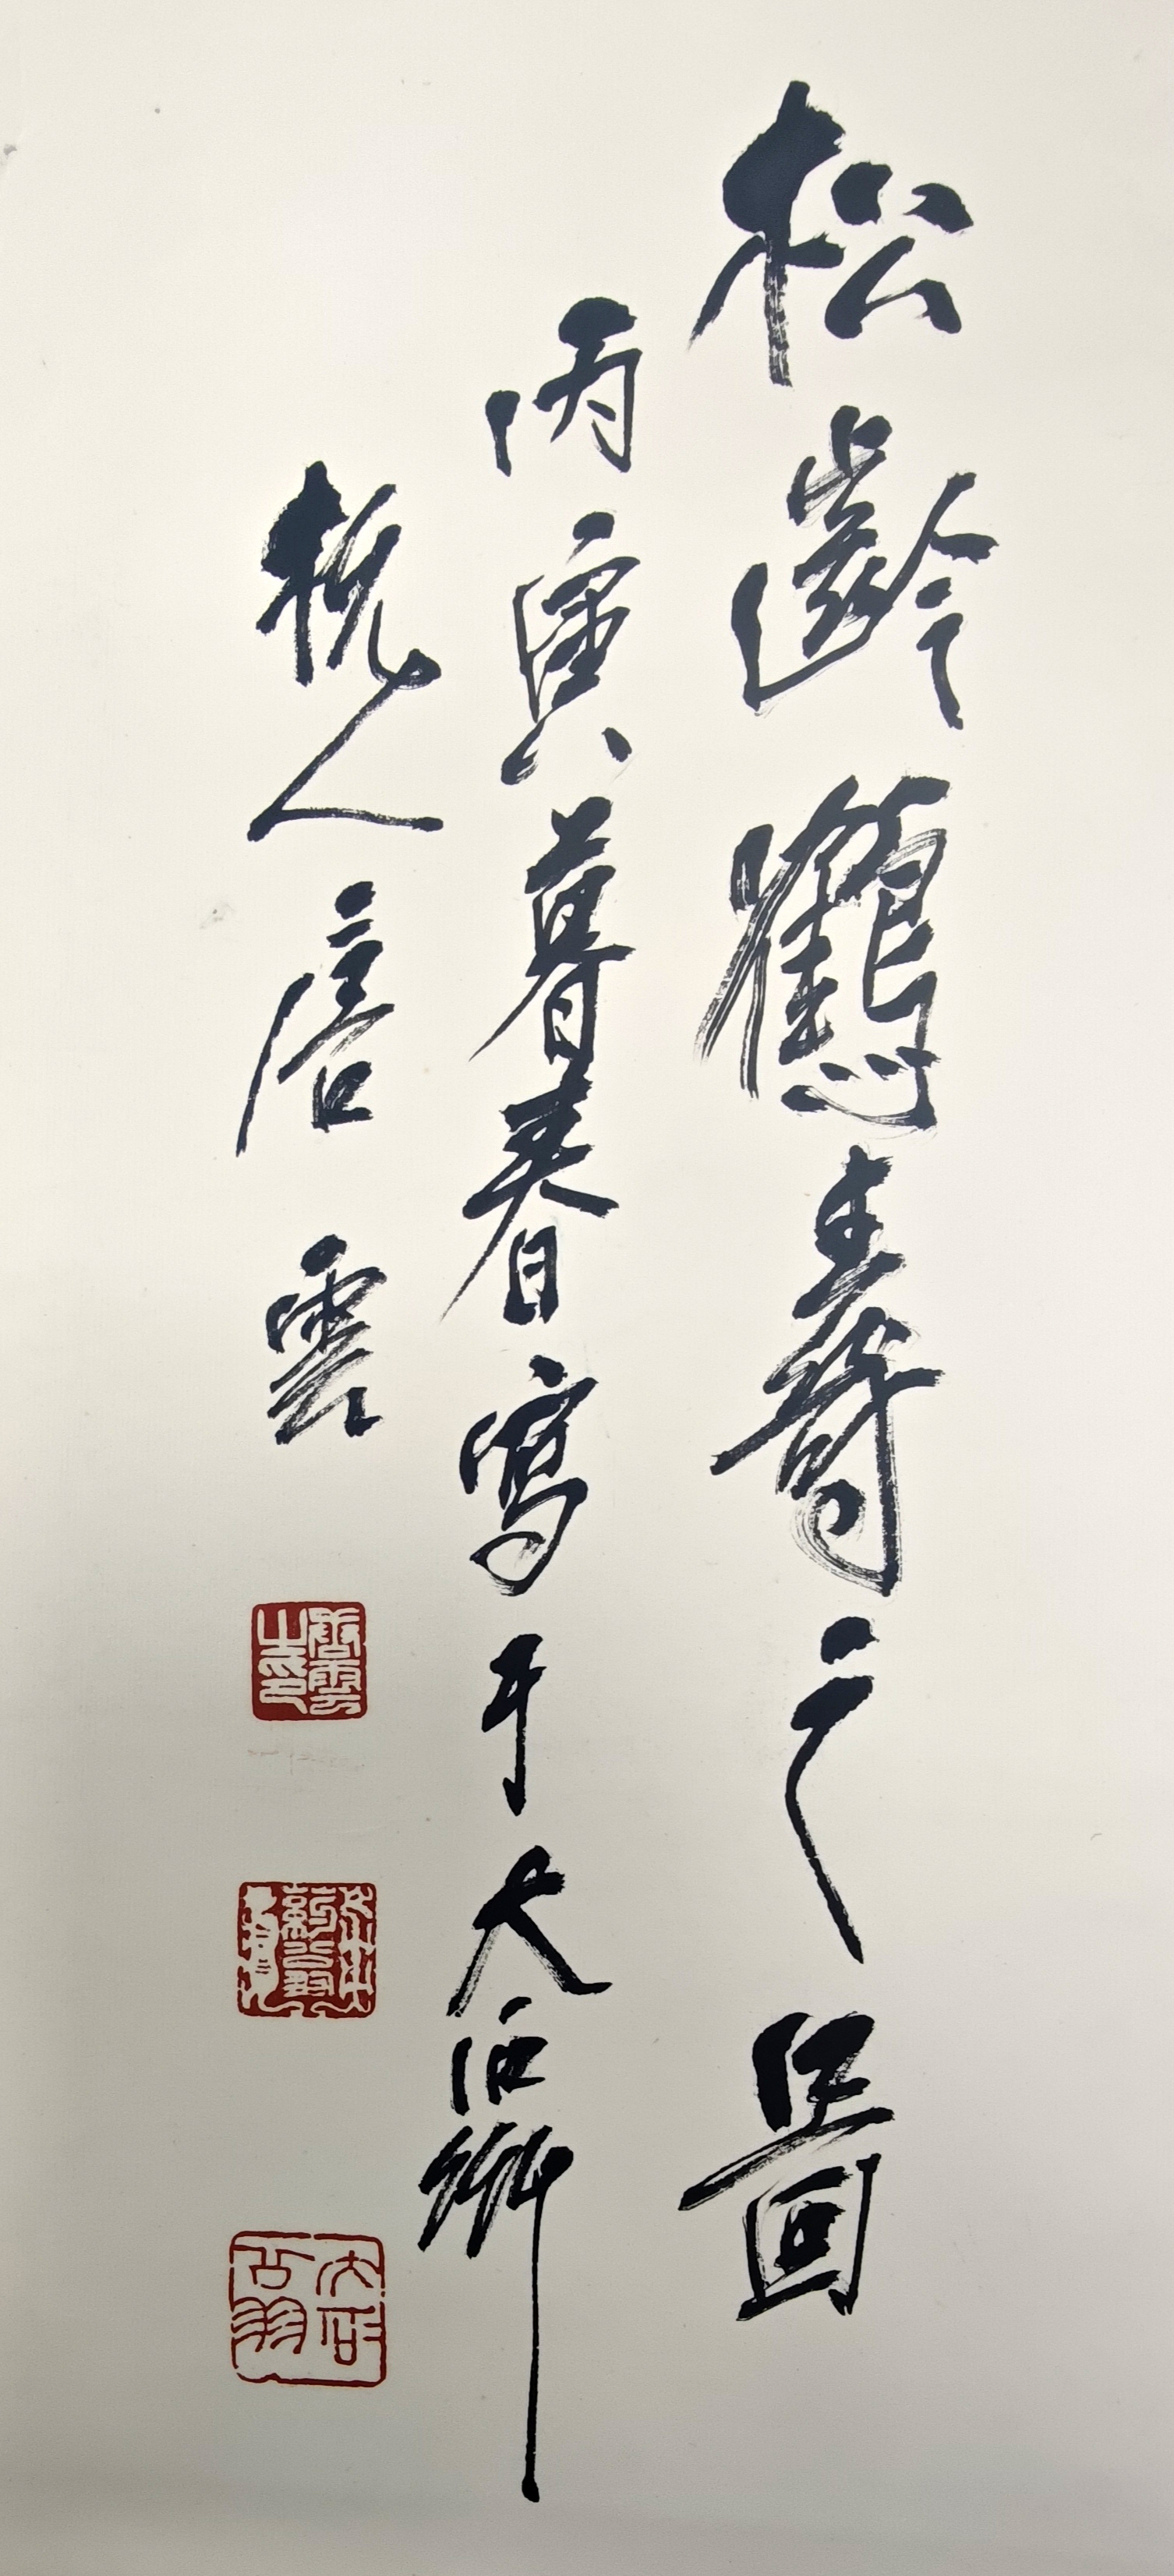 松齡鶴壽之圖
丙寅暮春寫于大石
杭人唐雲
唐雲之印
大石